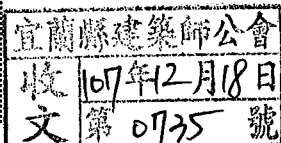 宜蘭縣建築師公會
收文
107年12月18日
第0735號